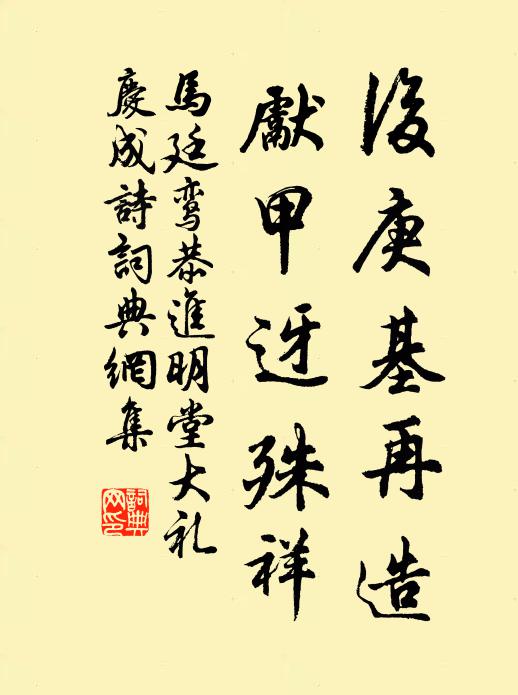 後庚基再造
獻甲迓殊祥
馬廷鸾恭進明堂大礼
慶成詩詞典網集
詞典
网印